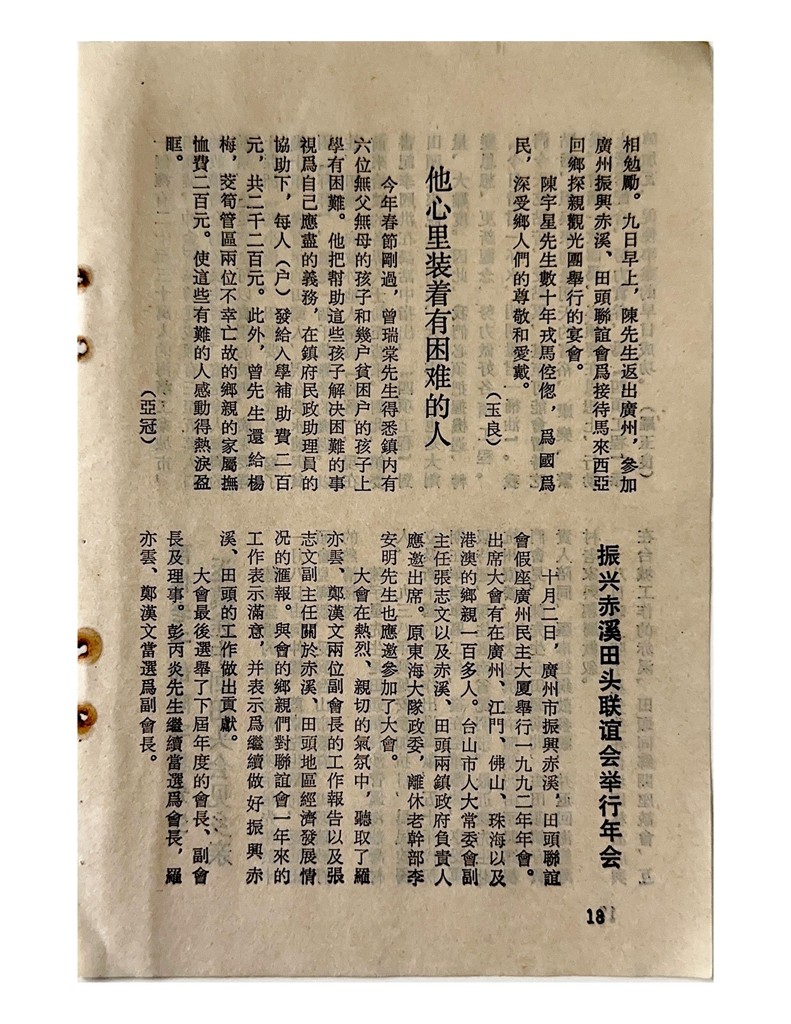 相勉勵。九日早上，陳先生返出廣州，參加
廣州振興赤溪、田頭聯誼會爲接待馬來西亞
回鄉探親觀光團舉行的宴會。
陳宇星先生數十年戎馬倥偬，爲國爲
民，深受鄉人們的尊敬和愛戴。
（玉良）
他心里装着有困难的人
今年春節剛過，曾瑞棠先生得悉鎮内有
六位無父無母的孩子和幾户貧困户的孩子上
學有困難。他把幫助這些孩子解决困難的事
視爲自己應盡的義務，在鎮府民政助理員的
協助下，每人（户）發給入學補助費二百
元，共二千二百元。此外，曾先生還給楊
梅，茭筍管區兩位不幸亡故的鄉親的家屬撫
恤費二百元。使這些有難的人感動得熱淚盈
眶。
（亞冠）
振兴赤溪田头联谊会举行年会
十月二日，廣州市振興赤溪，田頭聯誼
會假座廣州民主大厦舉行一九九二年年會。
出席大會有在廣州、江門、佛山、珠海以及
港澳的鄉親一百多人。台山市人大常委會副
主任張志文以及赤溪、田頭兩鎮政府負責人
應邀出席。原東海大隊政委，離休老幹部李
安明先生也應邀參加了大會。
大會在熱烈、親切的氣氛中，聽取了羅
亦雲、鄭漢文兩位副會長的工作報告以及張
志文副主任關於赤溪、田頭地區經濟發展情
况的滙報。與會的鄉親們對聯誼會一年來的
工作表示滿意，并表示爲繼續做好振興赤
溪、田頭的工作做出貢獻。
大會最後選舉了下屆年度的會長、副會
長及理事。彭丙炎先生繼續當選爲會長，羅
亦雲、鄭漢文當選爲副會長。
18